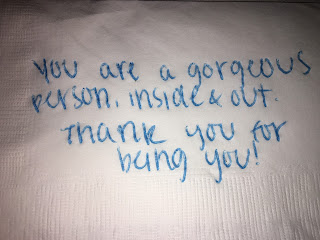 You are a gorgeous
person, inside & out.
Thank you for
being you!